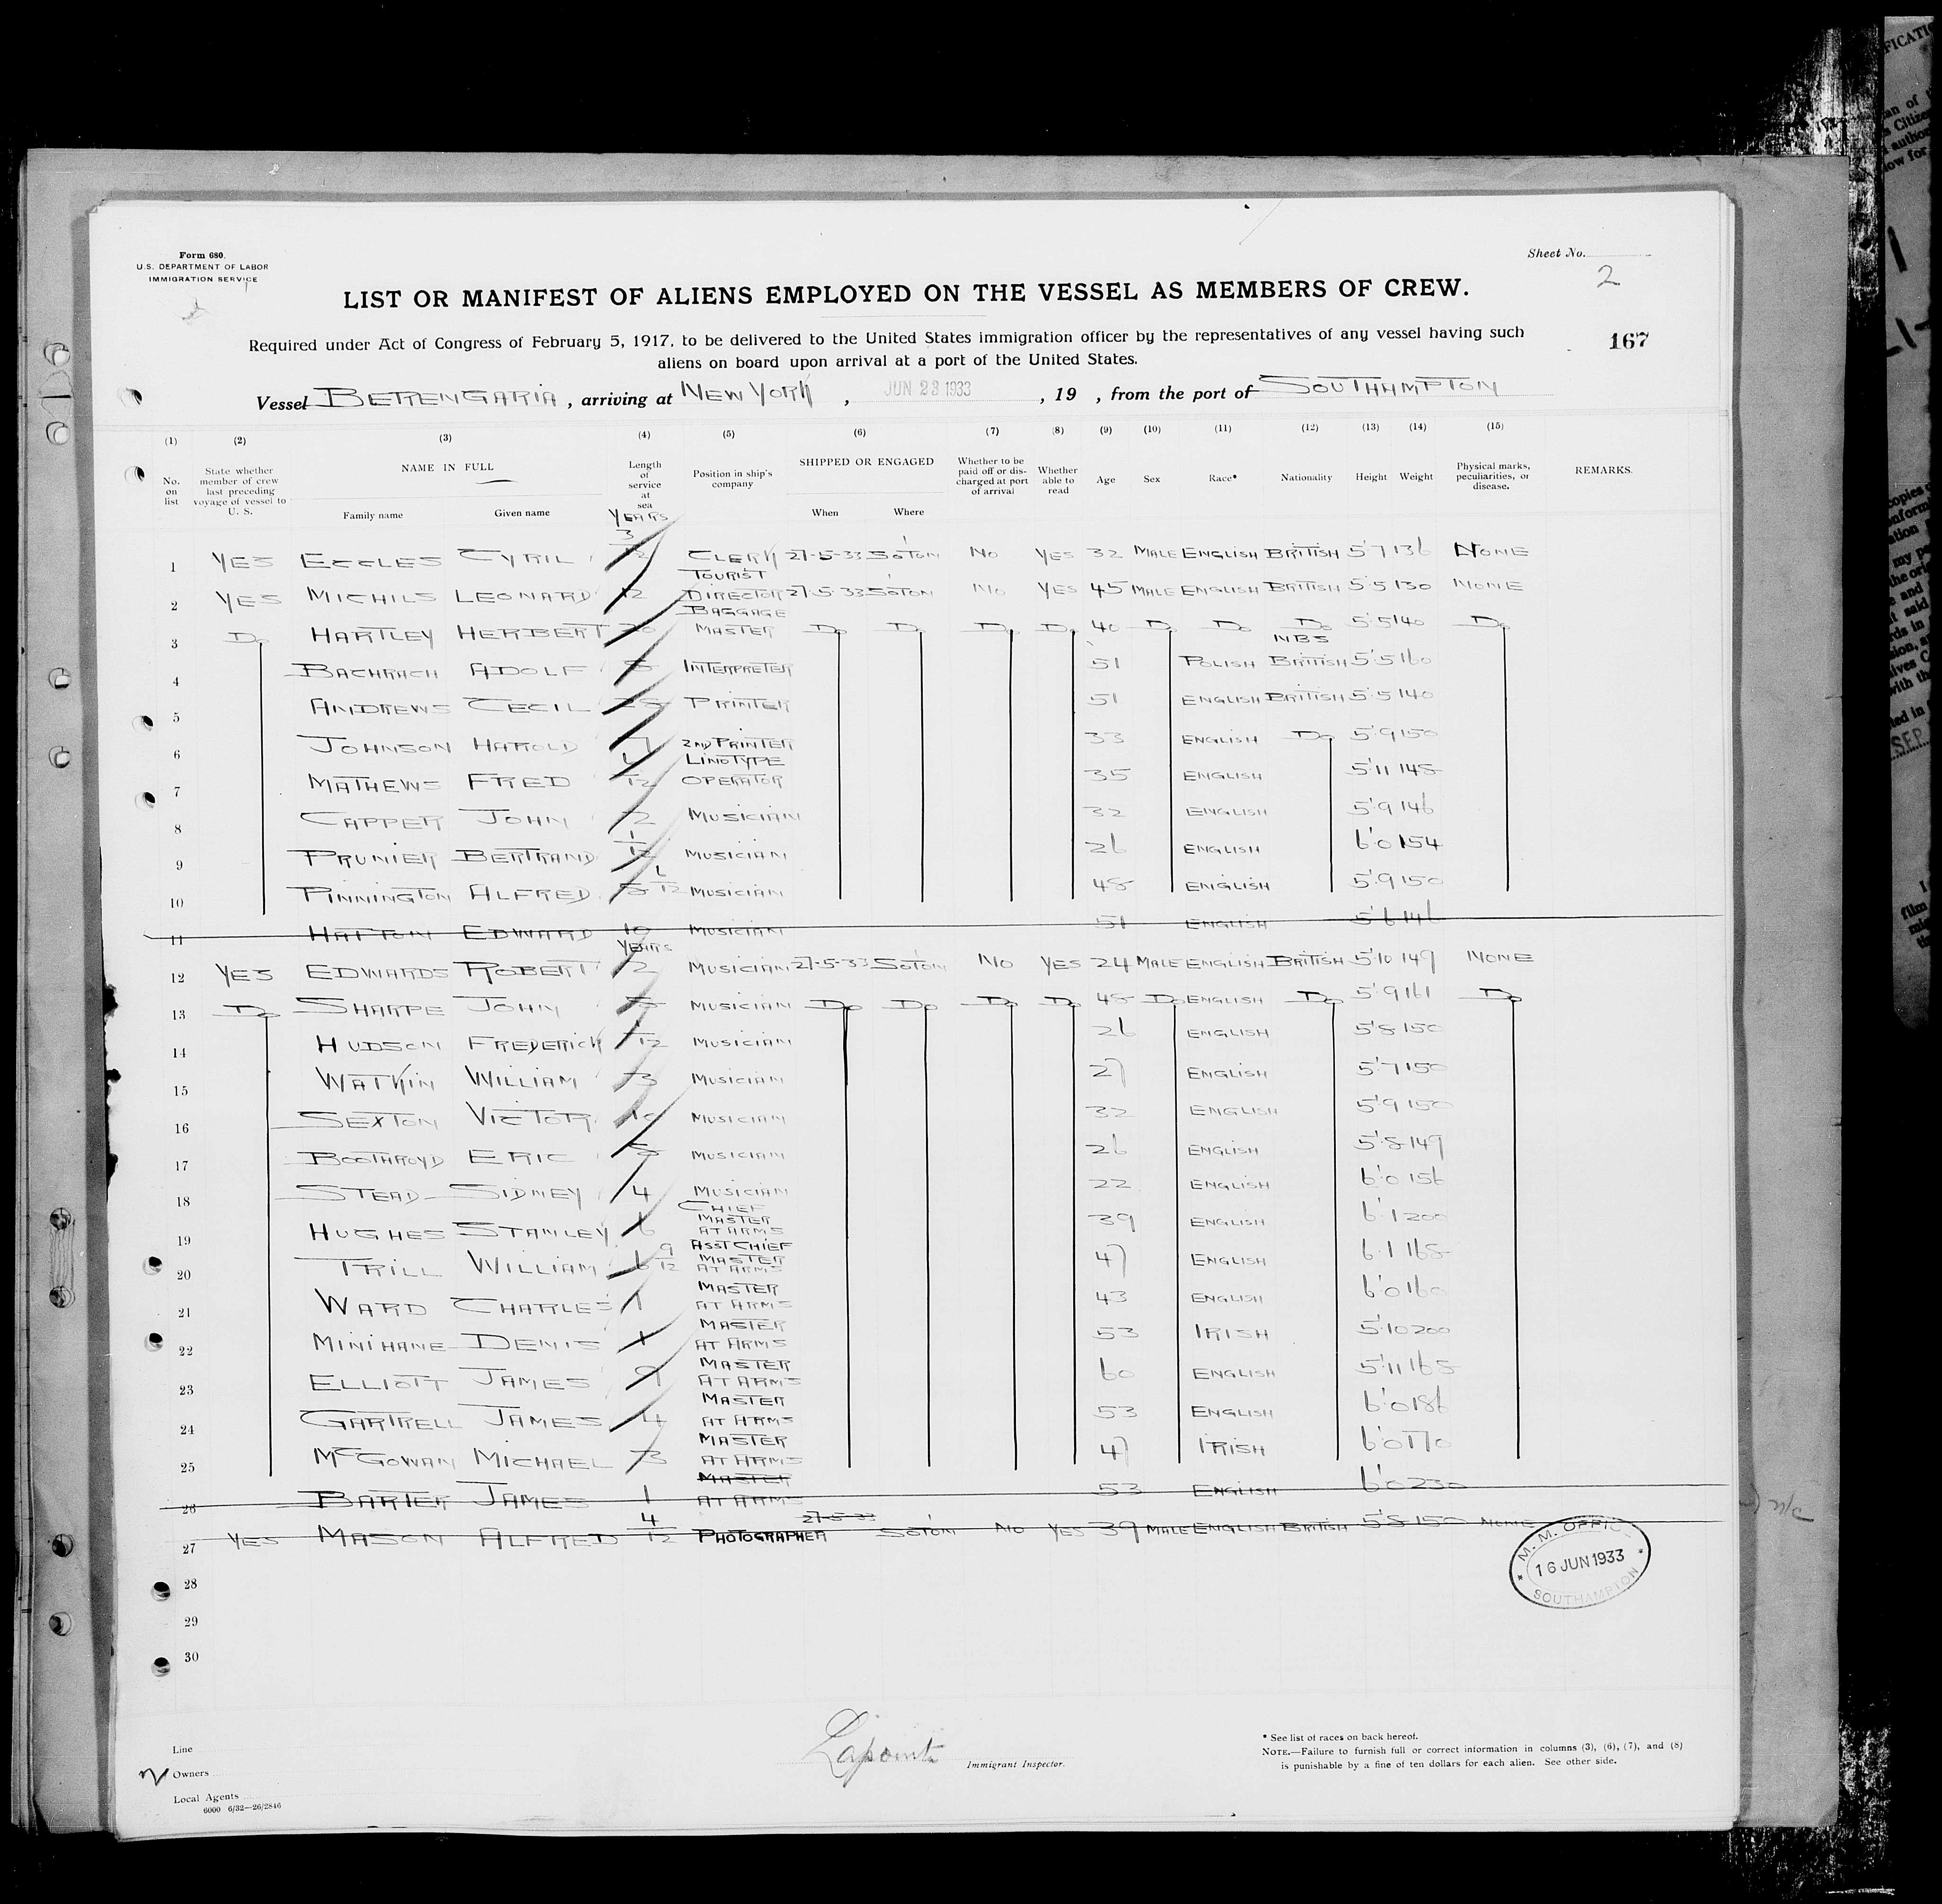 Form 680.
U.S. DEPARTMENT OF LABOR
IMMIGRATION SERVICE
Sheet No.
2
LIST OR MANIFEST OF ALIENS EMPLOYED ON THE VESSEL AS MEMBERS OF CREW.
Required under Act of Congress of February 5, 1917, to be delivered to the United States immigration officer by the representatives of any vessel having such
aliens on board upon arrival at a port of the United States.
167
Vessel BERENGARIA, arriving at NEW YORK, JUN 23 1933, 19 , from the port of SOUTHAMPTON
(1) (2) (3) (4) (5) (6) (7) (8) (9) (10) (11) (12) (13) (14) (15)
No. on list State whether member of crew last preceding voyage of vessel to U. S. NAME IN FULL Family name Given name Length of service at sea Position in ship's company SHIPPED OR ENGAGED When Where Whether to be paid off or discharged at port of arrival Whether able to read Age Sex Race* Nationality Height Weight Physical marks, peculiarities, or disease. REMARKS.
YEARS
1 YES ECCLES CYRIL 3/12 CLERK 27-5-33 SOTON NO YES 32 MALE ENGLISH BRITISH 5'7 136 NONE
2 YES MICHILS LEONARD 12 TOURIST DIRECTOR 27-5-33 SOTON NO YES 45 MALE ENGLISH BRITISH 5'5 130 NONE
3 Do HARTLEY HERBERT 20 BAGGAGE MASTER Do Do Do Do 40 Do Do Do 5'5 140 Do
NBS
4 BACHRACH ADOLF INTERPRETER 51 POLISH BRITISH 5'5 160
5 ANDREWS CECIL 25 PRINTER 51 ENGLISH BRITISH 5'5 140
6 JOHNSON HAROLD 7 2ND PRINTER 33 ENGLISH Do 5'9 150
7 MATHEWS FRED LINOTYPE OPERATOR 35 ENGLISH 5'11 148
8 CAPPER JOHN 2 MUSICIAN 32 ENGLISH 5'9 146
9 PRUNIER BERTRAND 1/12 MUSICIAN 26 ENGLISH 6'0 154
10 PINNINGTON ALFRED MUSICIAN 48 ENGLISH 5'9 150
11 HATTON EDWARD 10 MUSICIAN 51 ENGLISH 5'6 146
YEARS
12 YES EDWARDS ROBERT 2 MUSICIAN 27-5-33 SOTON NO YES 24 MALE ENGLISH BRITISH 5'10 149 NONE
13 Do SHARPE JOHN MUSICIAN Do Do Do Do 48 Do ENGLISH Do 5'9 161 Do
14 HUDSON FREDERICK MUSICIAN 26 ENGLISH 5'8 150
15 WATKIN WILLIAM 3 MUSICIAN 27 ENGLISH 5'7 150
16 SEXTON VICTOR MUSICIAN 32 ENGLISH 5'9 150
17 BOOTHROYD ERIC MUSICIAN 26 ENGLISH 5'8 149
18 STEAD SIDNEY 4 MUSICIAN 22 ENGLISH 6'0 156
19 HUGHES STANLEY 6 CHIEF MASTER AT ARMS 39 ENGLISH 6'1 200
20 TRILL WILLIAM 6 9/12 ASST CHIEF MASTER AT ARMS 47 ENGLISH 6'1 168
21 WARD CHARLES 1 MASTER AT ARMS 43 ENGLISH 6'0 160
22 MINIHANE DENIS 1 MASTER AT ARMS 53 IRISH 5'10 200
23 ELLIOTT JAMES 9 MASTER AT ARMS 60 ENGLISH 5'11 168
24 GARTRELL JAMES 4 MASTER AT ARMS 53 ENGLISH 6'0 186
25 McGOWAN MICHAEL 3 MASTER AT ARMS 47 IRISH 6'0 170
26 BARTER JAMES 1 MASTER AT ARMS 53 ENGLISH 6'0 230
27 YES MASON ALFRED 4/12 PHOTOGRAPHER 27-5-33 SOTON NO YES 39 MALE ENGLISH BRITISH 5'8 150 NONE
28
29
30
M. M. OFFICE
16 JUN 1933
SOUTHAMPTON
n/c
Line
Owners
Local Agents
6000 6/32—26/2846
Lapointe
Immigrant Inspector.
* See list of races on back hereof.
NOTE.—Failure to furnish full or correct information in columns (3), (6), (7), and (8)
is punishable by a fine of ten dollars for each alien. See other side.